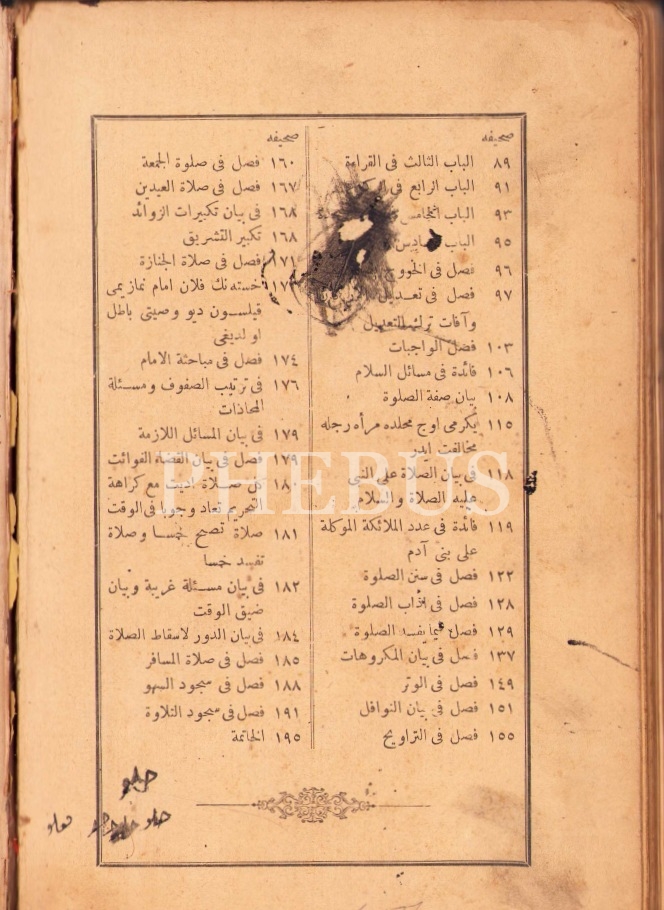 صحيفه
٨٩ الباب الثالث فى القراءة
٩١ الباب الرابع فى
٩٣ الباب الخامس
٩٥ الباب السادس
٩٦ فصل فى الخروج
٩٧ فصل فى تعديل
وآفات ترك التعديل
١٠٣ فصل الواجبات
١٠٦ فائدة فى مسائل السلام
١٠٨ بيان صفة الصلوة
١١٥ يكرمى اوچ محلده مرأه رجله
مخالفت ايدر
١١٨ فى بيان الصلاة على النبى
عليه الصلاة والسلام
١١٩ فائدة فى عدد الملائكة الموكلة
على بنى آدم
١٢٢ فصل فى سنن الصلوة
١٢٨ فصل فى آداب الصلوة
١٢٩ فصل فيما يفسد الصلوة
١٣٧ فصل فى بيان المكروهات
١٤٩ فصل فى الوتر
١٥١ فصل فى بيان النوافل
١٥٥ فصل فى التراويح
صحيفه
١٦٠ فصل فى صلوة الجمعة
١٦٧ فصل فى صلاة العيدين
١٦٨ فى بيان تكبيرات الزوائد
١٦٨ تكبير التشريق
١٧١ فصل فى صلاة الجنازة
خسته نك فلان امام نمازيمى
قيلسون ديو وصيتى باطل
اولديغى
١٧٤ فصل فى مباحثة الامام
١٧٦ فى ترتيب الصفوف ومسئلة
المحاذات
١٧٩ فى بيان المسائل اللازمة
١٧٩ فصل فى بيان القضاء الفوائت
١٨٠ كل صلاة اديت مع كراهة
التحريم تعاد وجوبا فى الوقت
١٨١ صلاة تصحح خمسا وصلاة
تفسد خمسا
١٨٢ فى بيان مسئلة غريبة وبيان
ضيق الوقت
١٨٤ فى بيان الدور لاسقاط الصلاة
١٨٥ فصل فى صلاة المسافر
١٨٨ فصل فى سجود السهو
١٩١ فصل فى سجود التلاوة
١٩٥ الخاتمة
PHEBUS